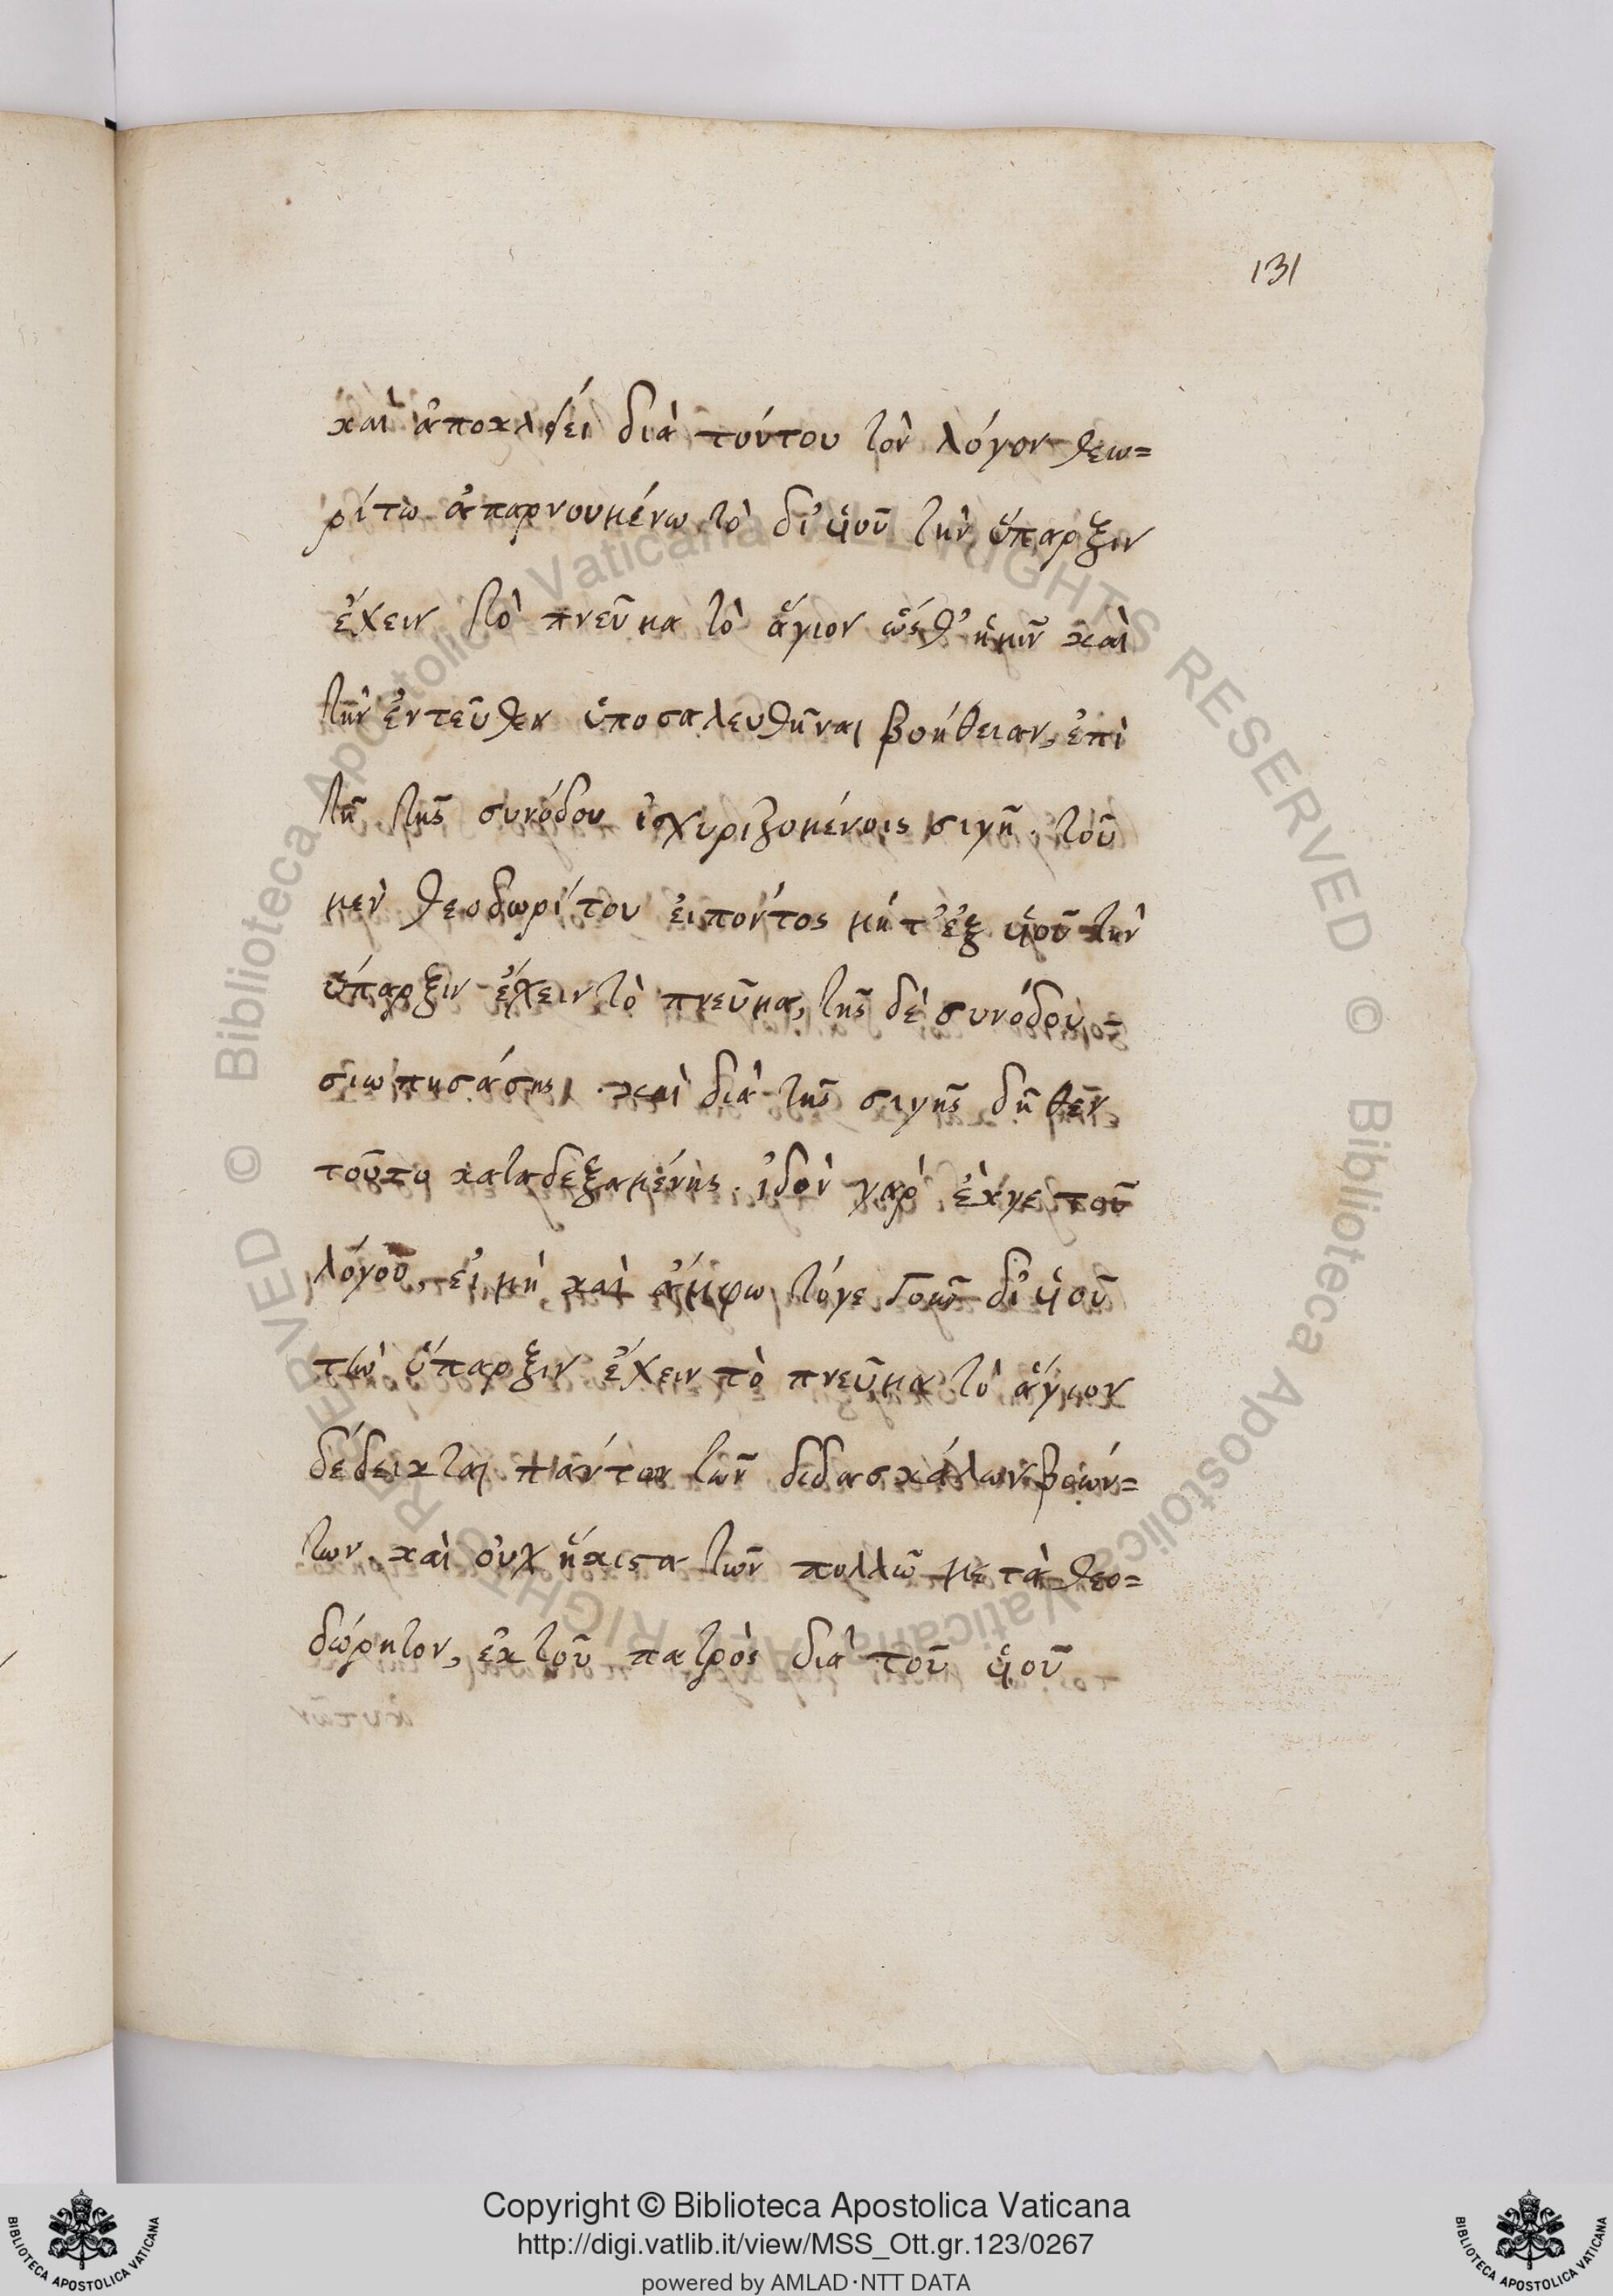 131
καὶ ἀποκλείει διὰ τούτου τὸν λόγον θεω=
ρίτω ἀπαρνουμένω τὸ δι' ὑιοῦ τὴν ὕπαρξιν
ἔχειν τὸ πνεῦμα τὸ ἅγιον ὥσθ' ἡμῖν καὶ
τὴν ἐντεῦθεν ὑποσαλευθῆναι βοήθειαν, ἐπὶ
τῇ τῆς συνόδου ἰσχυριζομένοις σιγῇ. τοῦ
μὲν θεοδωρίτου εἰπόντος μήτ' ἐξ ὑιοῦ τὴν
ὕπαρξιν ἔχειν τὸ πνεῦμα, τῆς δὲ συνόδου
σιωπησάσης, καὶ διὰ τῆς σιγῆς δῆθεν
τοῦτο καταδεξαμένης. ἰδοὺ γὰρ ἔκγε τοῦ
λόγου, εἰ μὴ καὶ ἄμφω τόγε γοῦν δι' ὑιοῦ
τὴν ὕπαρξιν ἔχειν τὸ πνεῦμα τὸ ἅγιον
δέδεικται πάντων τῶν διδασκάλων βοών=
των. καὶ οὐχ ἥκιστα τῶν πολλῶ μετὰ θεο=
δώρητον, ἐκ τοῦ πατρὸς διὰ τοῦ ὑιοῦ
© Biblioteca Apostolica Vaticana ALL RIGHTS RESERVED © Biblioteca Apostolica Vaticana ALL RIGHTS RESERVED
Copyright © Biblioteca Apostolica Vaticana
http://digi.vatlib.it/view/MSS_Ott.gr.123/0267
powered by AMLAD·NTT DATA
BIBLIOTECA APOSTOLICA VATICANA
BIBLIOTECA APOSTOLICA VATICANA